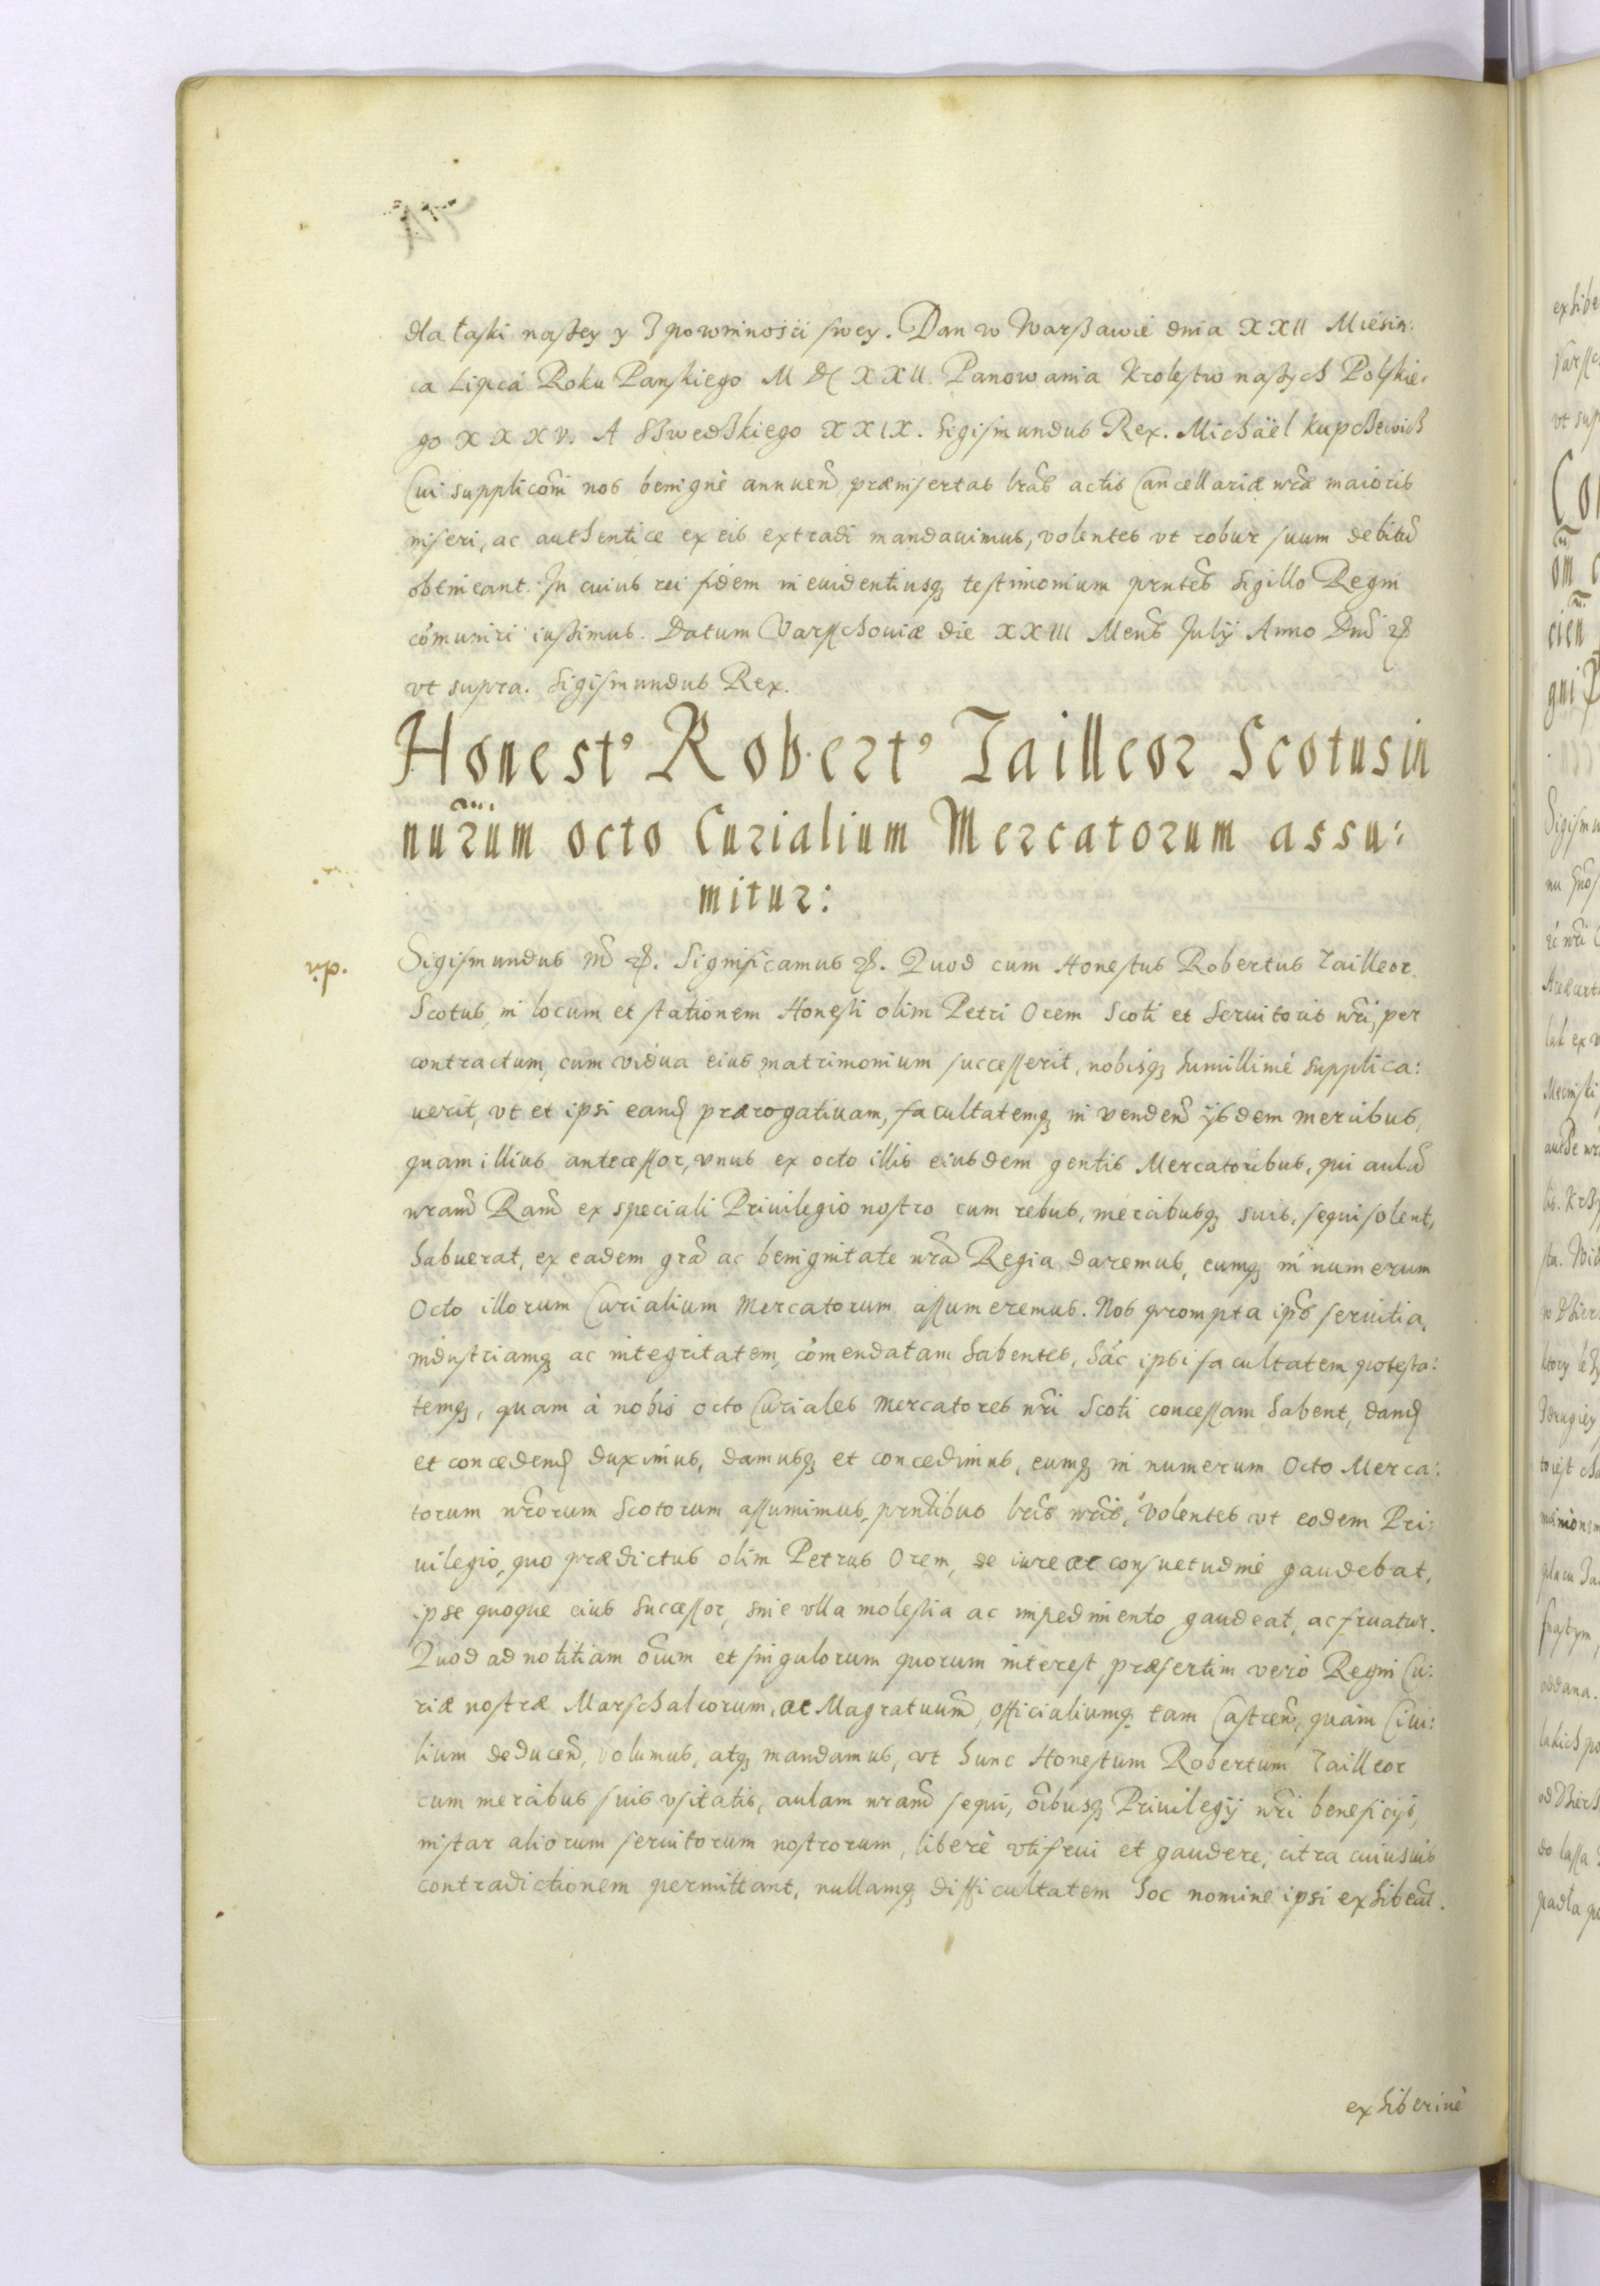 dla łaski naszey y z powinnośći swey. Dan w Warszawie dnia XXII Miesią:
ca Lipca Roku Panskiego M DC XXII. Panowania Krolestw naszych Polskie:
go XXXV. A Szwedzkiego XXIX. Sigismundus Rex. Michaël Kupczewicz
Cui supplicõni nos benignè annuen̄, præinsertas lr̃as actis Cancellariæ nr̃æ maioris
inseri, ac authentice ex eis extradi mandauimus, volentes vt robur suum debitũ
obtineant. In cuius rei fidem in euidentiusq; testimonium pn̄tes Sigillo Regni
cõmuniri iussimus. Datum Varsschouiæ die XXIII Mens̃ July Anno Dñi &c
vt supra. Sigismundus Rex.
Honest⁹ Robert⁹ Tailleor Scotus in
nũrum octo Curialium Mercatorum assu:
mitur:
Sigismundus III &c. Significamus &c. Quod cum Honestus Robertus Tailleor
Scotus, in locum et stationem Honesti olim Petri Orem Scoti et Seruitoris nr̃i, per
contractum, cum vidua eius matrimonium successerit, nobisq; humillimè supplica:
uerit, vt et ipsi eand̃ prærogatiuam, facultatemq; in venden̄ ijsdem mercibus,
quam illius antecessor, vnus ex octo illis eiusdem gentis Mercatoribus, qui aulã
nr̃am Rãm ex speciali Priuilegio nostro cum rebus, mercibusq; suis, sequi solent,
habuerat, ex eadem gr̃a ac benignitate nr̃a Regia daremus, eumq; in numerum
Octo illorum Curialium Mercatorum assumeremus. Nos prompta ipš seruitia,
industriamq; ac integritatem, cõmendatam habentes, hãc ipsi facultatem potesta:
temq;, quam à nobis octo Curiales Mercatores nr̃i Scoti concessam habent, dand̃
et concedend̃ duximus, damusq; et concedimus, eumq; in numerum Octo Merca:
torum nr̃orum Scotorum assumimus, pn̄tibus lr̃is nr̃is, Volentes vt eodem Pri:
uilegio, quo prædictus olim Petrus Orem, de iure ac consuetudine gaudebat,
ipse quoque eius Successor, sine vlla molestia ac impedimento gaudeat, ac fruatur.
Quod ad notitiam oĩum et singulorum quorum interest, præsertim verò Regni Cu:
riæ nostræ Marschalcorum, ac Magratuum̃, Officialiumq; tam Castren̄, quàm Ciui:
lium deducen̄, volumus, atq; mandamus, vt hunc Honestum Robertum Tailleor
cum mercibus suis vsitatis, aulam nr̃am sequi, oĩbusq; Priuilegij nr̃i beneficijs,
instar aliorum seruitorum nostrorum, liberè vti frui et gaudere, citra cuiusuis
contradictionem permittant, nullamq; difficultatem hoc nomine ipsi exhibeãt.
exhiberiue